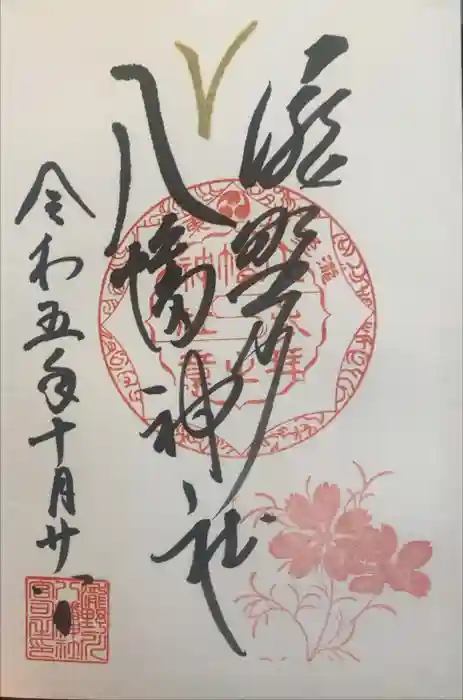 瀧野川
八幡神社
令和五年十月廿一日